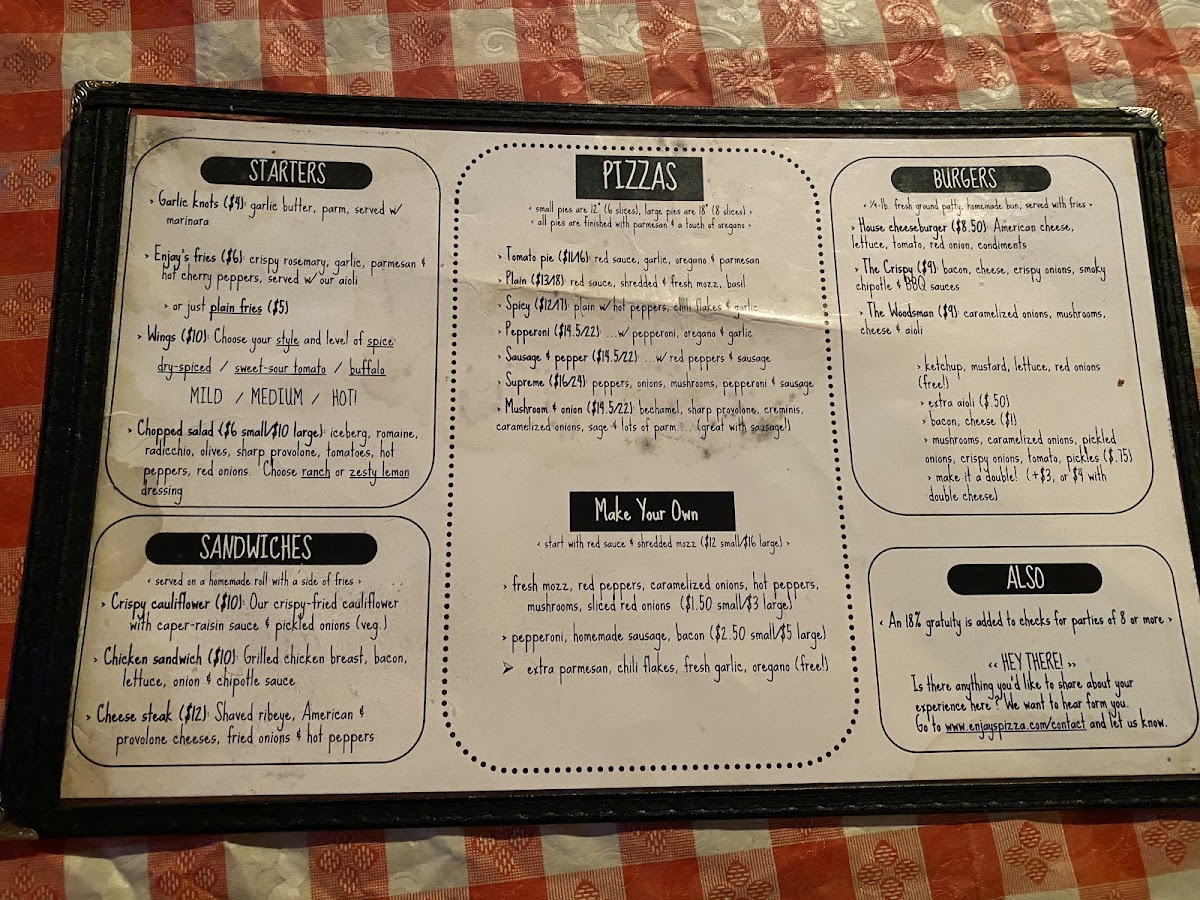 STARTERS
› Garlic knots ($4): garlic butter, parm, served w/
marinara
› Enjay's fries ($6): crispy rosemary, garlic, parmesan &
hot cherry peppers, served w/ our aioli
› or just plain fries ($5)
› Wings ($10): Choose your style and level of spice:
dry-spiced / sweet-sour tomato / buffalo
MILD / MEDIUM / HOT!
› Chopped salad ($6 small/$10 large): iceberg, romaine,
radicchio, olives, sharp provolone, tomatoes, hot
peppers, red onions. Choose ranch or zesty lemon
dressing
SANDWICHES
‹ served on a homemade roll with a side of fries ›
› Crispy cauliflower ($10): Our crispy-fried cauliflower
with caper-raisin sauce & pickled onions (veg.)
› Chicken sandwich ($10): Grilled chicken breast, bacon,
lettuce, onion & chipotle sauce
› Cheese steak ($12): Shaved ribeye, American &
provolone cheeses, fried onions & hot peppers
PIZZAS
‹ small pies are 12" (6 slices), large pies are 18" (8 slices) ›
‹ all pies are finished with parmesan & a touch of oregano ›
› Tomato pie ($11/16): red sauce, garlic, oregano & parmesan
› Plain ($13/18): red sauce, shredded & fresh mozz, basil
› Spicy ($12/17): plain w/ hot peppers, chili flakes & garlic
› Pepperoni ($14.5/22): ...w/ pepperoni, oregano & garlic
› Sausage & pepper ($14.5/22): ...w/ red peppers & sausage
› Supreme ($16/24): peppers, onions, mushrooms, pepperoni & sausage
› Mushroom & onion ($14.5/22): bechamel, sharp provolone, creminis,
caramelized onions, sage & lots of parm ... (great with sausage!)
Make Your Own
‹ start with red sauce & shredded mozz ($12 small/$16 large) ›
› fresh mozz, red peppers, caramelized onions, hot peppers,
mushrooms, sliced red onions ($1.50 small/$3 large)
› pepperoni, homemade sausage, bacon ($2.50 small/$5 large)
➢ extra parmesan, chili flakes, fresh garlic, oregano (free!)
BURGERS
‹ ¼-lb. fresh ground patty, homemade bun, served with fries ›
› House cheeseburger ($8.50): American cheese,
lettuce, tomato, red onion, condiments
› The Crispy ($9): bacon, cheese, crispy onions, smoky
chipotle & BBQ sauces
› The Woodsman ($9): caramelized onions, mushrooms,
cheese & aioli
› ketchup, mustard, lettuce, red onions
(free!)
› extra aioli ($.50)
› bacon, cheese ($1)
› mushrooms, caramelized onions, pickled
onions, crispy onions, tomato, pickles ($.75)
› make it a double! (+$3, or $4 with
double cheese)
ALSO
‹ An 18% gratuity is added to checks for parties of 8 or more ›
‹‹ HEY THERE! ››
Is there anything you'd like to share about your
experience here? We want to hear form you.
Go to www.enjayspizza.com/contact and let us know.